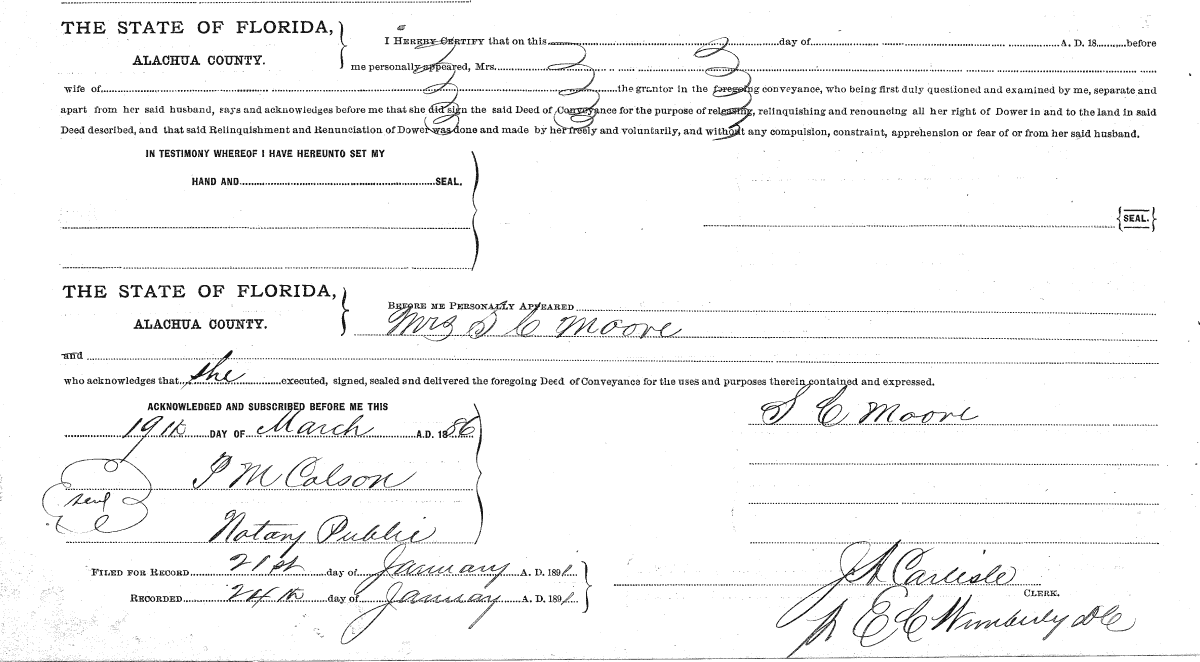 THE STATE OF FLORIDA,
ALACHUA COUNTY.
I HEREBY CERTIFY that on this day of A. D. 18 before
me personally appeared, Mrs.
wife of the grantor in the foregoing conveyance, who being first duly questioned and examined by me, separate and
apart from her said husband, says and acknowledges before me that she did sign the said Deed of Conveyance for the purpose of releasing, relinquishing and renouncing all her right of Dower in and to the land in said
Deed described, and that said Relinquishment and Renunciation of Dower was done and made by her freely and voluntarily, and without any compulsion, constraint, apprehension or fear of or from her said husband.
IN TESTIMONY WHEREOF I HAVE HEREUNTO SET MY
HAND AND SEAL.
SEAL.
THE STATE OF FLORIDA,
ALACHUA COUNTY.
BEFORE ME PERSONALLY APPEARED
Mrs S C Moore
and
who acknowledges that she executed, signed, sealed and delivered the foregoing Deed of Conveyance for the uses and purposes therein contained and expressed.
ACKNOWLEDGED AND SUBSCRIBED BEFORE ME THIS
19th DAY OF March A.D. 1886
S C Moore
P M Colson
seal
Notary Public
FILED FOR RECORD 21st day of January A. D. 1891.
RECORDED 24th day of January A. D. 1891.
J A Carlisle
CLERK.
E C Wimberly DC